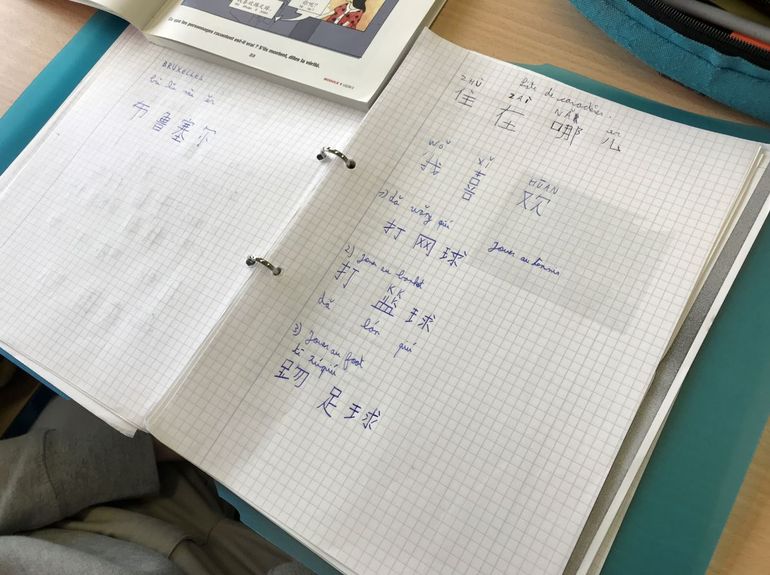 Ce que les personnages racontent est-il vrai ? S'ils mentent, dites la vérité.
BRUXELLES
bù lǔ sài ěr
布鲁塞尔
liste de caractères
ZHÙ ZÀI NǍR
住在哪儿
wǒ xǐ HUĀN
我喜欢
1) dǎ wǎng qiú
打网球 Jouer au tennis
2) Jouer au basket
打篮球
dǎ lán qiú
3) Jouer au foot
tī zúqiú
踢足球